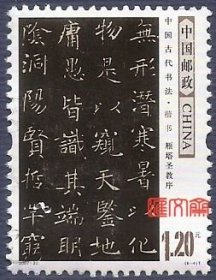 中国邮政 CHINA
中国古代书法·楷书 雁塔圣教序
無形潛寒暑以化
物是以窺天鑑地
庸愚皆識其端明
陰洞陽賢哲罕窮
1.20元
2007-30
(6-4)T